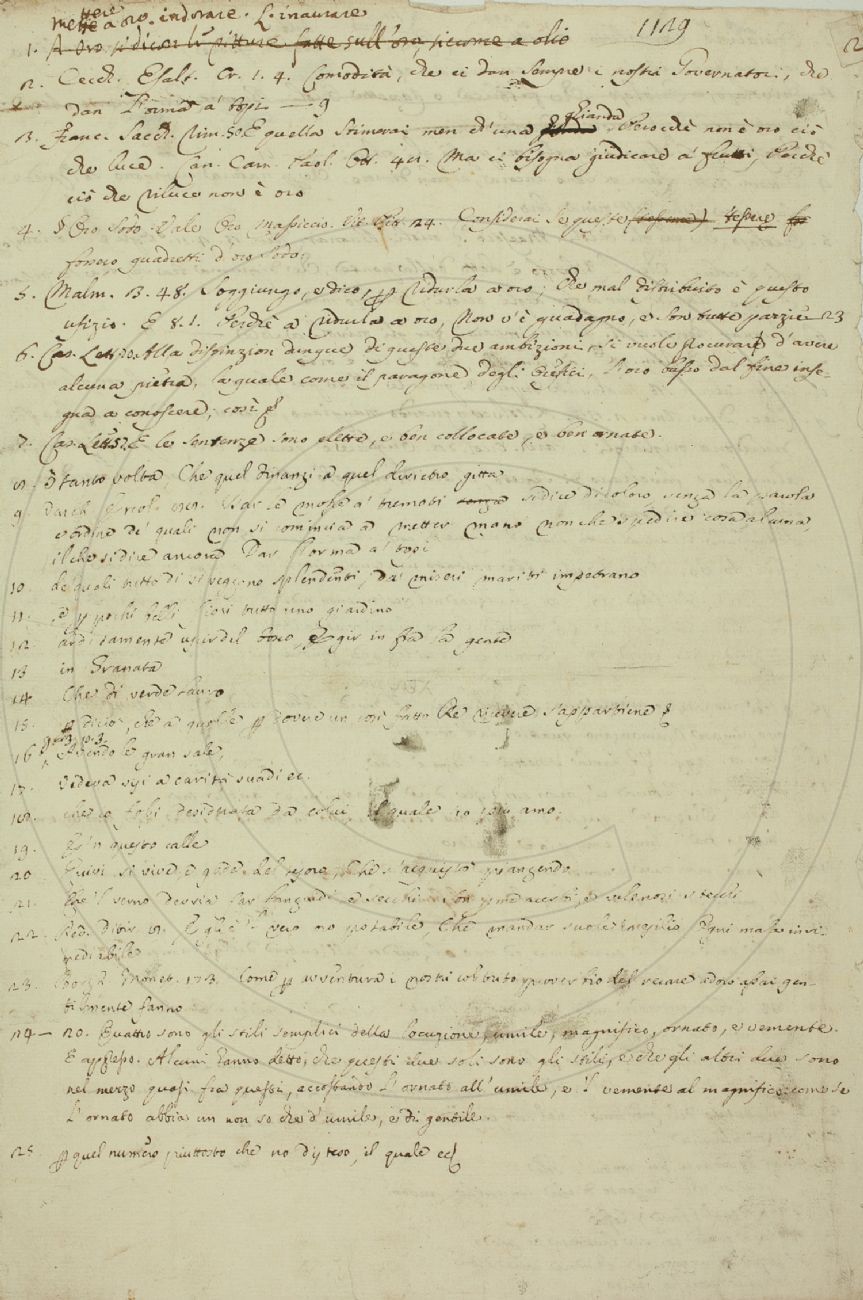 mettere a oro. indorare. L. inaurare
1129
2
1. A oro si dicon le pitture fatte sull'oro siccome a olio
2. Cecch. Esalt. Cr. 1. 4. Comodità, che ci dan sempre i nostri Governatori, che
dan Norma a' topi — 9
3. Franc. Sacch. Rim. 50 E quella stimerai men ch'una ghianda, Perocchè non è oro ciò
che luce. Can. Carn. Paol. Ott. 41. Ma ci bisogna giudicare a' frutti, Perchè
ciò che riluce non è oro
4. § Oro sodo. Vale Oro massiccio. 24. Considerai se queste (tessure) tessere
fossero quadretti d'oro sodo.
5. Malm. 3. 48. Soggiungo, e dico, p ridurla a oro, Che mal distribuito è questo
ufizio. E 8. 1. Perchè a ridurla a oro, Non v'è guadagno, e son tutte pazzie 23
6. Cas. Lett. Alla distinzion dunque di queste due ambizioni, si vuole procurare d'avere
alcuna pietra, la quale come il paragone degli Orefici, l'oro basso dal fine inse-
gna a conoscere; così
7. Cas. Lett. 57. E le sentenze sono elette, e ben collocate, e ben ornate.
8. tanto volta, Che quel dinanzi a quel dirietro gitta
9. Varch. Ercol. Dar le mosse a' tremoti si dice di coloro, senza la parola
e ordine de' quali non si comincia a metter mano non che spedire cosa alcuna,
il che si dice ancora Dar Norma a' topi
10. de' quali tutto dì si veggono splendenti, da' miseri mariti impetrano
11. e p pochi belli fiori tutto uno giardino
12. arditamente uscir del bosco, e gir in fra la gente
13 in Granata
14 Che di verde lauro
15. p dicto, che a quelle p dovere un così fatto Re ricevere s'appartiene
16 Avendo le gran sale,
17. Vedeva
18. ch'io fossi desiderata da colui il quale io più amo.
19. E'n questo calle
20 Quivi si vive e gode del tesoro, Che s'acquistò piangendo
21. Che'l verno devria far languidi e secchi, Son p me acerbi, e velenosi stecchi
22. Red. Ditir. 8. E quest'è il vero oro potabile, Che mandar suole in esilio Ogni male inri-
mediabile
23. Borgh. Monet. 173. Come p avventura i nostri col tuto proverbio del recare a oro assai gen-
tilmente fanno
24 — 20. Quattro sono gli stili semplici della locuzione, umile, magnifico, ornato, e vemente.
E appresso. Alcuni hanno detto, che questi due soli sono gli stili, e che gli altri due sono
nel mezzo quasi fra questi, accostando l'ornato all'umile, e 'l vemente al magnifico: come se
l'ornato abbia un non so che d'umile, e di gentile.
25. p quel numero piuttosto che no disteso, il quale ec.